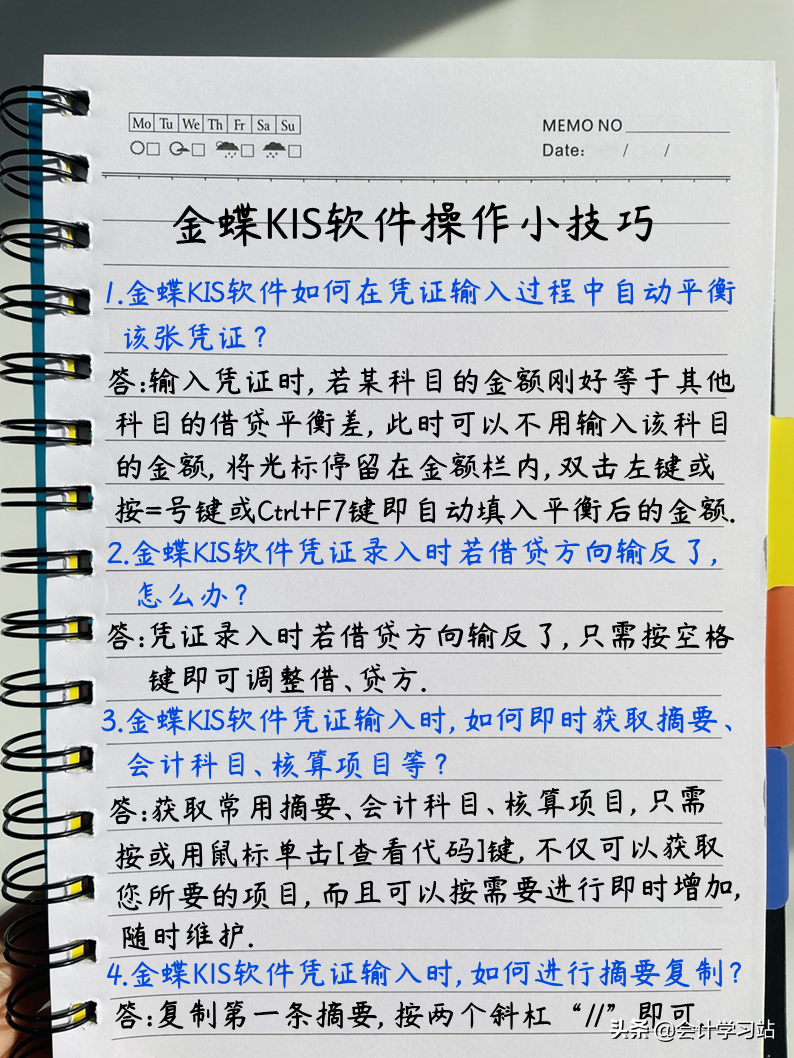 Mo Tu We Th Fr Sa Su
MEMO NO
Date: / /
金蝶KIS软件操作小技巧
1.金蝶KIS软件如何在凭证输入过程中自动平衡
该张凭证?
答:输入凭证时,若某科目的金额刚好等于其他
科目的借贷平衡差,此时可以不用输入该科目
的金额,将光标停留在金额栏内,双击左键或
按=号键或Ctrl+F7键即自动填入平衡后的金额.
2.金蝶KIS软件凭证录入时若借贷方向输反了,
怎么办?
答:凭证录入时若借贷方向输反了,只需按空格
键即可调整借、贷方.
3.金蝶KIS软件凭证输入时,如何即时获取摘要、
会计科目、核算项目等?
答:获取常用摘要、会计科目、核算项目,只需
按或用鼠标单击[查看代码]键,不仅可以获取
您所要的项目,而且可以按需要进行即时增加,
随时维护.
4.金蝶KIS软件凭证输入时,如何进行摘要复制?
答:复制第一条摘要,按两个斜杠“//”即可
头条 @会计学习站